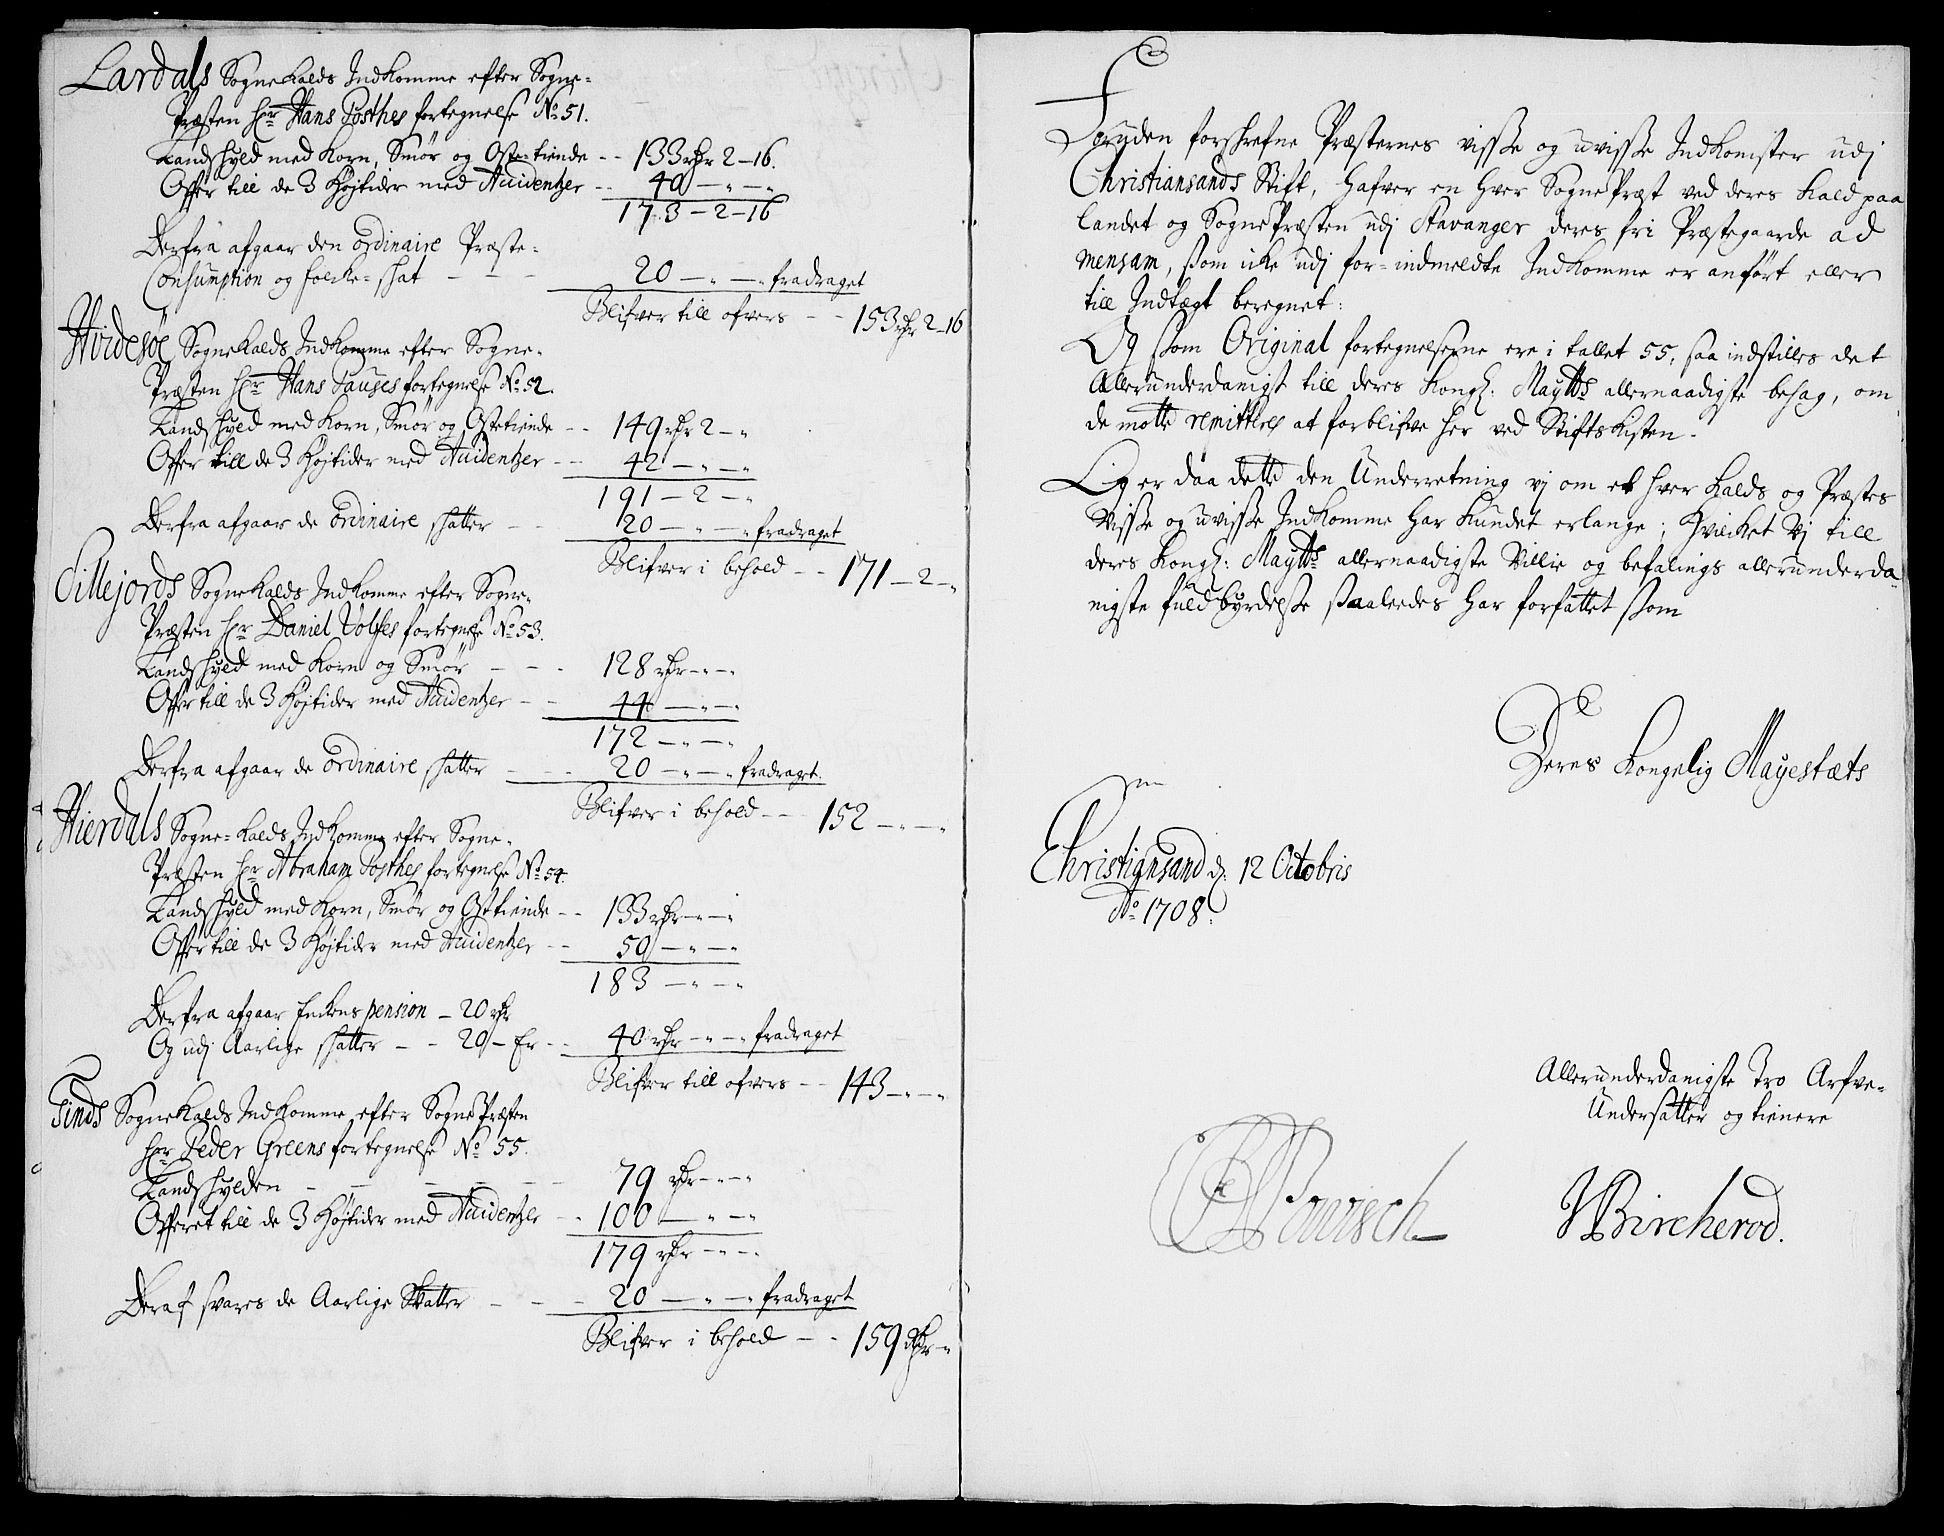 Lardals SogneKalds Indkomme efter Sogne-
Præsten hr Hans Posthes fortegnelse No 51.
Landskyld med Korn, Smör og Oste-tiende - - 133 rdr 2-16.
Offer till de 3 Højtider med Accidentzer - - 40 - " - "
173 - 2 - 16
Derfra afgaar den ordinaire Præste-
Consumption og folke-skat - - - 20 - " - " fradraget
Blifver till ofvers - - 153 rdr 2-16
Hvidesöe SogneKalds Indkomme efter Sogne-
Præsten hr Hans Pauses fortegnelse No 52.
Landskyld med Korn, Smör og Ostetiende - - 149 rdr 2 - "
Offer till de 3 Højtider med Accidentzer - - 42 - " - "
191 - 2 - "
Derfra afgaar de ordinaire skatter - - 20 - " - " fradraget
Blifver i behold - - 171 - 2 - "
Sillejords SogneKalds Indkomme efter Sogne-
Præsten hr Daniel Volfes fortegnelse No 53.
Landskyld med Korn og Smör - - - 128 rdr - " - "
Offer till de 3 Højtider med Accidentzer - - 44 - " - "
172 - " - "
Derfra afgaar de ordinaire skatter - - 20 - " - " fradraget.
Blifver i behold - - 152 - " - "
Hierdals Sogne-Kalds Indkomme efter Sogne-
Præsten hr Abraham Posthes fortegnelse No 54.
Landskyld med Korn, Smör og Osttiende - - 133 rdr - " - "
Offer till de 3 Højtider med Accidentzer - - 50 - " - "
183 - " - "
Derfra afgaar Enkens pension - 20 rdr
Og udj Aarlige skatter - - 20 - Er - - 40 rdr - " - " fradraget
Blifver till ofvers - - 143 - " - "
Tinds SogneKalds Indkomme efter SognePræsten
hr Peder Greens fortegnelse No 55.
Landskylden - - - - - 79 rdr - " - "
Offeret till de 3 Højtider med Accidentzer - - 100 - " - "
179 rdr - " - "
Deraf svares de Aarlige Skatter - - - 20 - " - " fradraget
Blifver i behold - - 159 Rdr - "
Foruden forskrefne Præsternes visse og uvisse Indkomster udj
Christiansands Stift, hafver en hver SognePræst ved deres Kald paa
landet og SognePræsten udj Stavanger deres fri Præstegaarde ad
mensam, som icke udj for-indmeldte Indkomme er anfört eller
till Indtægt beregnet:
Og som Original fortegnelserne ere i tallet 55, saa indstilles det
Allerunderdanigst till deres Kongl: Maytts allernaadigste behag, om
de motte remitteres at forblifve her ved Stifts Kisten.
Og er daa dette den Underretning vj om et hver Kalds og Præstes
Visse og uvisse Indkomme har Kundet erlange; Hvilket vj till
deres Kongl: Maytts allernaadigste Villie og befalings allerunderda-
nigste fuldbyrdelse saaledes har forfattet som
Deres Kongelig Mayestæts
Christiansand d: 12 Octobris
Ao 1708.
Allerunderdanigste Tro Arfve-
Undersatter og tienere
Powisch
JBircherod.